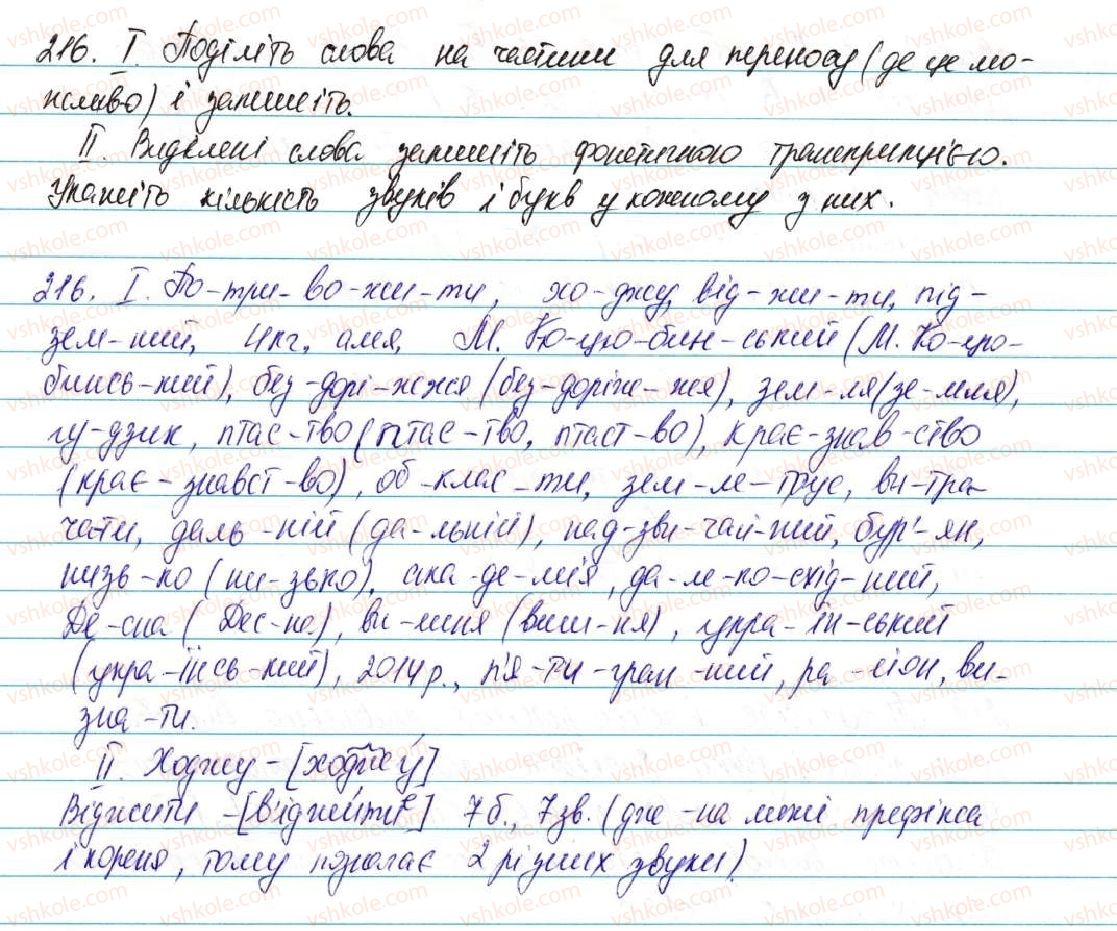 216. I. Поділіть слова на частини для переносу (де це мо-
жливо) і запишіть.
II. Виділені слова запишіть фонетичною транскрипцією.
Укажіть кількість звуків і букв у кожному з них.
216. I. По-три-во-жи-ти, хо-джу, від-жи-ти, під-
зем-ний, 4кг, алея, М. Ко-цю-бин-ський (М. Ко-цю-
бинсь-кий), без-дорі-жжя (без-доріж-жя), зем-ля (зе-мля),
гу-дзик, птас-тво (птас-тво, птаст-во), крає-знав-ство
(крає-знавст-во), об-клас-ти, зем-ле-трус, ви-тра-
чати, даль-ній (да-льній), над-зви-чай-ний, бур'-ян,
низь-ко (ни-зько), ака-де-мія, да-ле-ко-схід-ний,
Де-сна (Дес-на), ви-шня (виш-ня), укра-їн-ський
(укра-їнсь-кий), 2014р., п'я-ти-гран-ний, ра-йон, ви-
зна-ти.
II. Ходжу - [ходжу]
Віджити - [в'іджитие] 7б., 7зв. (дж - на межі префікса
і кореня, тому позначає 2 різних звуки).